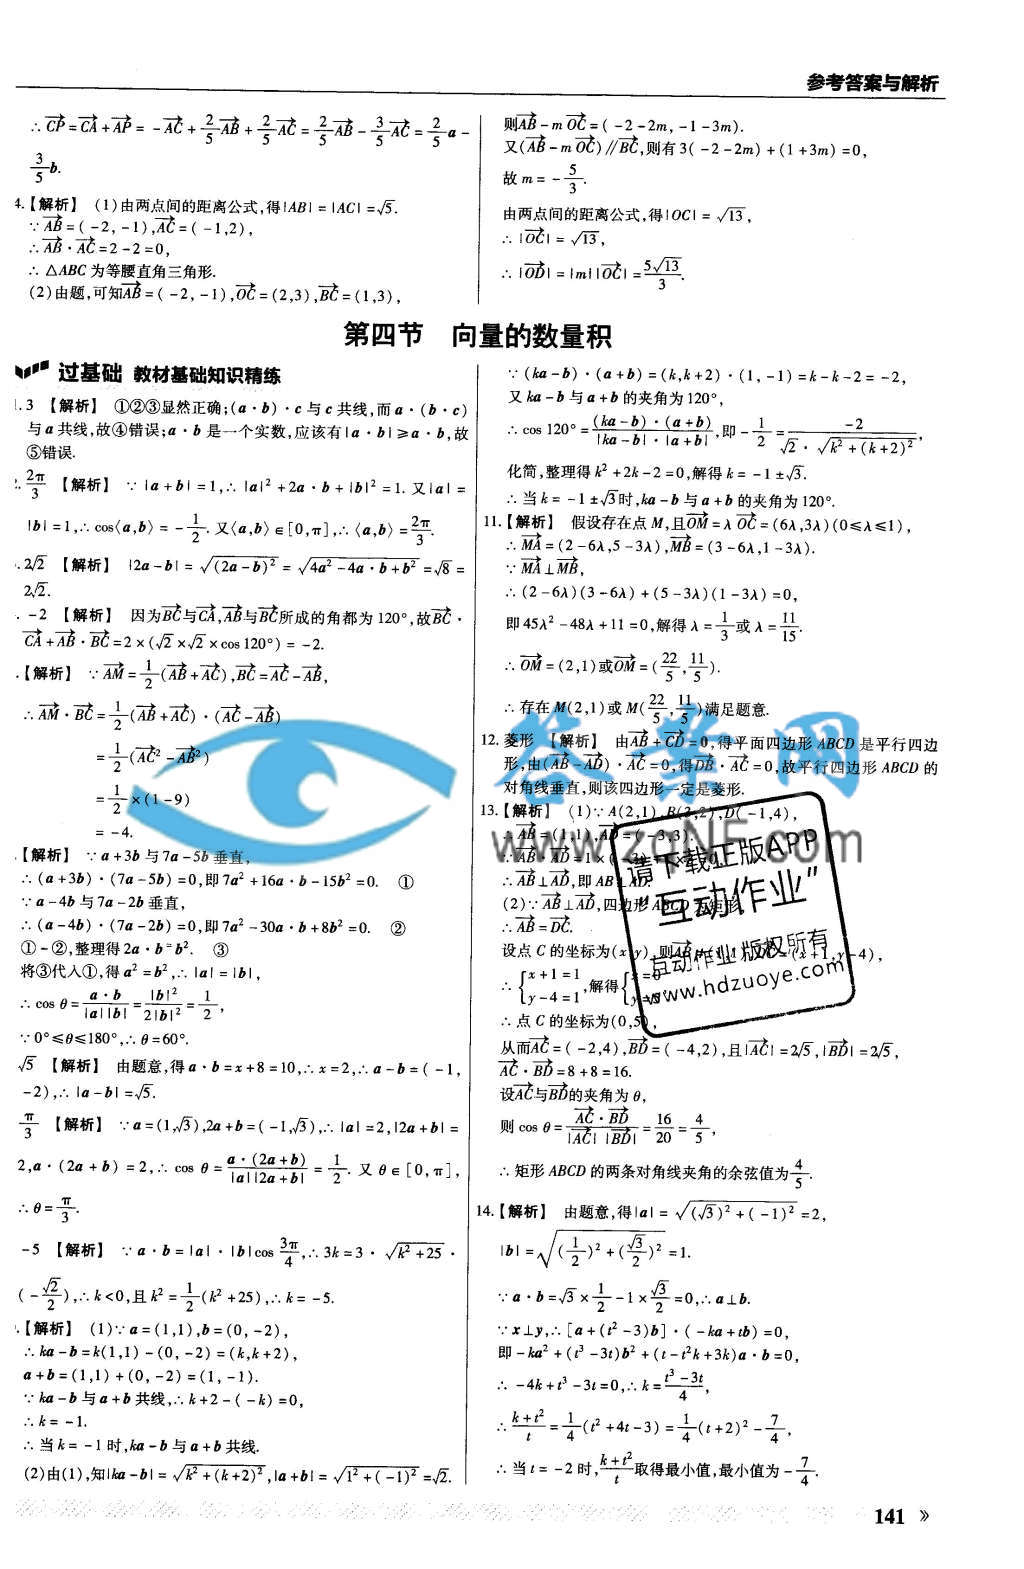 参考答案与解析
∴ CP=CA+AP= -AC+2/5AB+2/5AC=2/5AB-3/5AC=2/5a-
3/5b.
4.【解析】 (1)由两点间的距离公式,得|AB|=|AC|=√5.
∵AB=(-2,-1),AC=(-1,2),
∴AB·AC=2-2=0,
∴△ABC为等腰直角三角形.
(2)由题,可知AB=(-2,-1),OC=(2,3),BC=(1,3),
则AB-mOC=(-2-2m,-1-3m).
又(AB-mOC)∥BC,则有3(-2-2m)+(1+3m)=0,
故m=-5/3.
由两点间的距离公式,得|OC|=√13,
∴|OC|=√13,
∴|OD|=|m||OC|=5√13/3.
第四节 向量的数量积
过基础 教材基础知识精练
1.3 【解析】 ①②③显然正确;(a·b)·c与c共线,而a·(b·c)
与a共线,故④错误;a·b是一个实数,应该有|a·b|≥a·b,故
⑤错误.
2.2π/3 【解析】 ∵|a+b|=1,∴|a|²+2a·b+|b|²=1.又|a|=
|b|=1,∴cos⟨a,b⟩=-1/2.又⟨a,b⟩∈[0,π],∴⟨a,b⟩=2π/3.
.2√2 【解析】 |2a-b|=√(2a-b)²=√4a²-4a·b+b²=√8=
2√2.
. -2 【解析】 因为BC与CA,AB与BC所成的角都为120°,故BC·
CA+AB·BC=2×(√2×√2×cos120°)=-2.
.【解析】 ∵AM=1/2(AB+AC),BC=AC-AB,
∴AM·BC=1/2(AB+AC)·(AC-AB)
=1/2(AC²-AB²)
=1/2×(1-9)
=-4.
.【解析】 ∵a+3b与7a-5b垂直,
∴(a+3b)·(7a-5b)=0,即7a²+16a·b-15b²=0. ①
∵a-4b与7a-2b垂直,
∴(a-4b)·(7a-2b)=0,即7a²-30a·b+8b²=0. ②
①-②,整理得2a·b=b². ③
将③代入①,得a²=b²,∴|a|=|b|,
∴cosθ=a·b/|a||b|=|b|²/2|b|²=1/2,
∵0°≤θ≤180°,∴θ=60°.
√5 【解析】 由题意,得a·b=x+8=10,∴x=2,∴a-b=(-1,
-2),∴|a-b|=√5.
π/3 【解析】 ∵a=(1,√3),2a+b=(-1,√3),∴|a|=2,|2a+b|=
2,a·(2a+b)=2,∴cosθ=a·(2a+b)/|a||2a+b|=1/2.又θ∈[0,π],
∴θ=π/3.
-5 【解析】 ∵a·b=|a|·|b|cos3π/4,∴3k=3·√k²+25·
(-√2/2),∴k<0,且k²=1/2(k²+25),∴k=-5.
.【解析】 (1)∵a=(1,1),b=(0,-2),
∴ka-b=k(1,1)-(0,-2)=(k,k+2),
a+b=(1,1)+(0,-2)=(1,-1).
∵ka-b与a+b共线,∴k+2-(-k)=0,
∴k=-1.
∴当k=-1时,ka-b与a+b共线.
(2)由(1),知|ka-b|=√k²+(k+2)²,|a+b|=√1²+(-1)²=√2.
∵(ka-b)·(a+b)=(k,k+2)·(1,-1)=k-k-2=-2,
又ka-b与a+b的夹角为120°,
∴cos120°=(ka-b)·(a+b)/|ka-b|·|a+b|,即-1/2=-2/√2·√k²+(k+2)²,
化简,整理得k²+2k-2=0,解得k=-1±√3.
∴当k=-1±√3时,ka-b与a+b的夹角为120°.
11.【解析】 假设存在点M,且OM=λOC=(6λ,3λ)(0≤λ≤1),
∴MA=(2-6λ,5-3λ),MB=(3-6λ,1-3λ).
∵MA⊥MB,
∴(2-6λ)(3-6λ)+(5-3λ)(1-3λ)=0,
即45λ²-48λ+11=0,解得λ=1/3或λ=11/15.
∴OM=(2,1)或OM=(22/5,11/5).
∴存在M(2,1)或M(22/5,11/5)满足题意.
12.菱形 【解析】 由AB+CD=0,得平面四边形ABCD是平行四边
形,由(AB-AD)·AC=0,得DB·AC=0,故平行四边形ABCD的
对角线垂直,则该四边形一定是菱形.
13.【解析】 (1)∵A(2,1),B(3,2),D(-1,4),
∴AB=(1,1),AD=(-3,3).
∴AB·AD=1×(-3)+1×3=0,
∴AB⊥AD,即AB⊥AD.
(2)∵AB⊥AD,四边形ABCD为矩形,
∴AB=DC.
设点C的坐标为(x,y),则AB=(1,1),DC=(x+1,y-4),
∴{x+1=1 y-4=1,解得{x=0 y=5,
∴点C的坐标为(0,5),
从而AC=(-2,4),BD=(-4,2),且|AC|=2√5,|BD|=2√5,
AC·BD=8+8=16.
设AC与BD的夹角为θ,
则cosθ=AC·BD/|AC||BD|=16/20=4/5,
∴矩形ABCD的两条对角线夹角的余弦值为4/5.
14.【解析】 由题意,得|a|=√(√3)²+(-1)²=2,
|b|=√(1/2)²+(√3/2)²=1.
∵a·b=√3×1/2-1×√3/2=0,∴a⊥b.
∵x⊥y,∴[a+(t²-3)b]·(-ka+tb)=0,
即-ka²+(t³-3t)b²+(t-t²k+3k)a·b=0,
∴-4k+t³-3t=0,∴k=t³-3t/4,
∴k+t²/t=1/4(t²+4t-3)=1/4(t+2)²-7/4,
∴当t=-2时,k+t²/t取得最小值,最小值为-7/4.
答案网
www.zqNF.com
请下载正版APP
“互动作业”
互动作业 版权所有
www.hdzuoye.com
141